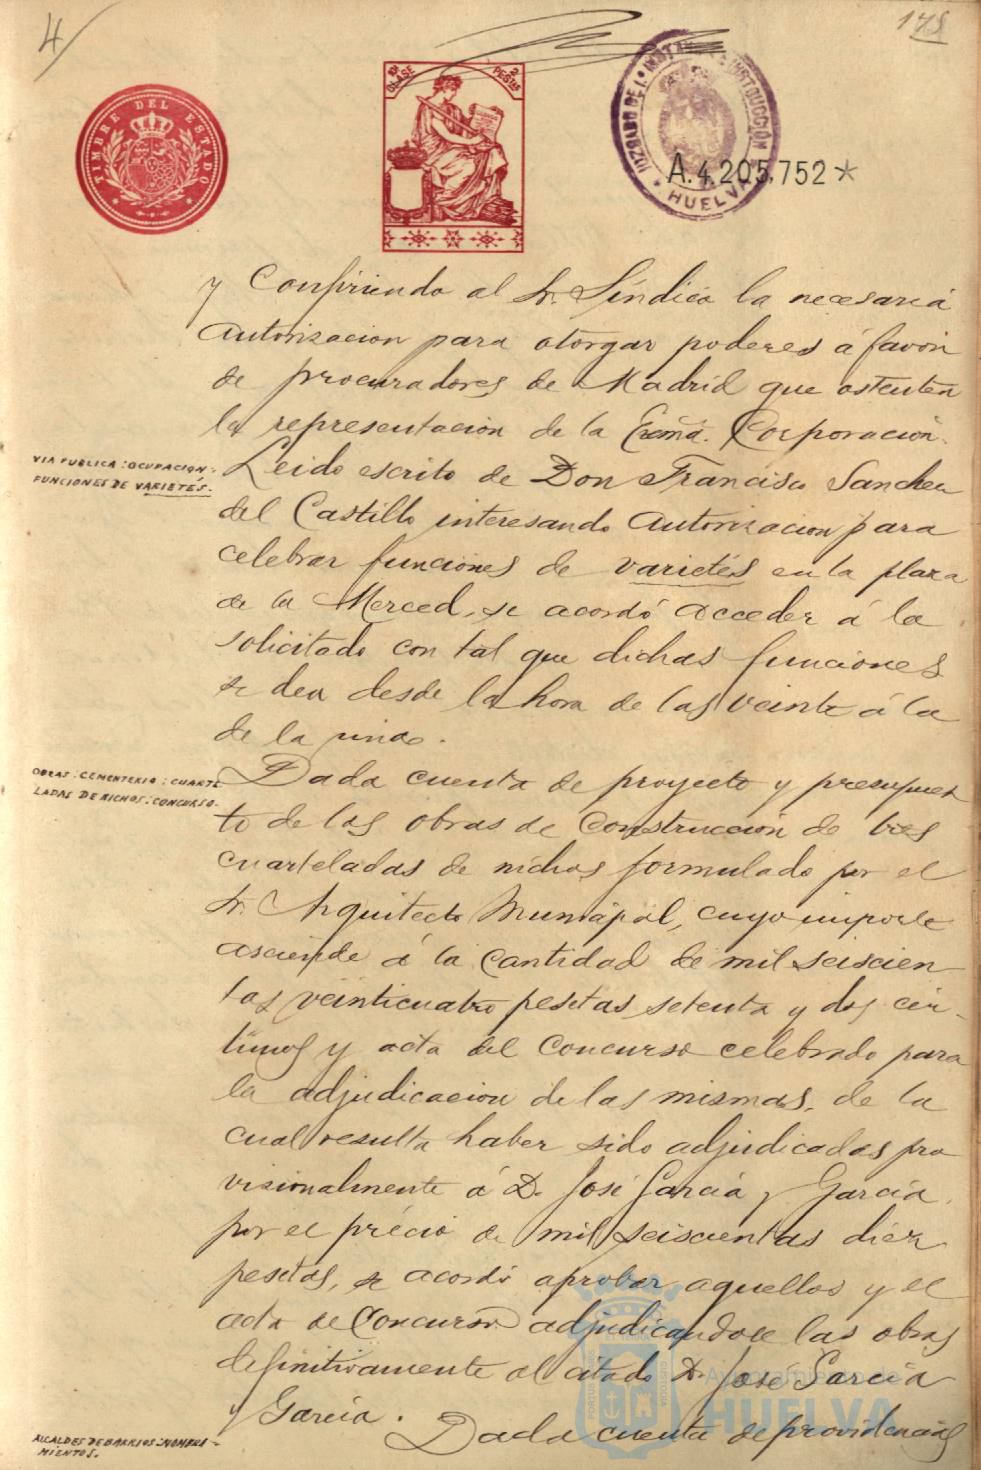 4
175
TIMBRE DEL ESTADO
10ª CLASE
2 PESETAS
JUZGADO DE 1ª INSTANCIA E INSTRUCCIÓN
HUELVA
A.4.205.752*
y Confiriendo al Sr. Síndico la necesaria
autorizacion para otorgar poderes á favor
de procuradores de Madrid que ostenten
la representacion de la Excmã. Corporación.
VIA PUBLICA : OCUPACIÓN :
FUNCIONES DE VARIETÉS.
Leido escrito de Don Francisco Sanchez
del Castillo interesando autorizacion para
celebrar funciones de varietés en la plaza
de la Merced, se acordó acceder á lo
solicitado con tal que dichas funciones
se den desde la hora de las veinte á la
de la una.
OBRAS : CEMENTERIO : CUARTE
LADAS DE NICHOS : CONCURSO.
Dada cuenta de proyecto y presupues
to de las obras de construcción de tres
cuarteladas de nichos formulado por el
Sr. Arquitecto Municipal, cuyo importe
asciende á la cantidad de mil seiscien
tas veinticuatro pesetas setenta y dos cén-
timos y acta del concurso celebrado para
la adjudicacion de las mismas, de la
cual resulta haber sido adjudicadas pro
visionalmente á D. José García y García,
por el précio de mil seiscientas diez
pesetas, se acordó aprobar aquellos y el
acta de Concurso adjudicandose las obras
definitivamente al citado D. José García
y García.
ALCALDES DE BARRIOS : NOMBRA-
MIENTOS.
Dada cuenta de providencias
Ayuntamiento de
HUELVA